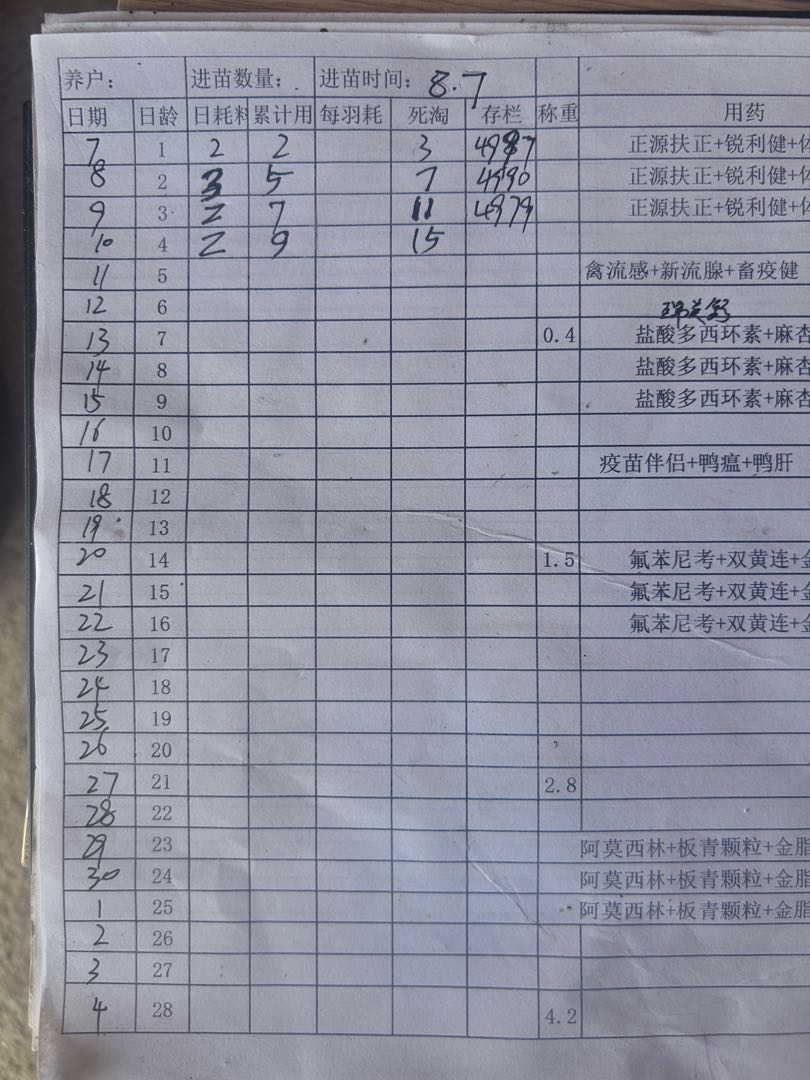 养户： 进苗数量： 进苗时间：8.7
日期 日龄 日耗料 累计用 每羽耗 死淘 存栏 称重 用药
7 1 2 2 3 4987 正源扶正+锐利健+体
8 2 3 5 7 4990 正源扶正+锐利健+体
9 3 2 7 11 4979 正源扶正+锐利健+体
10 4 2 9 15
11 5 禽流感+新流腺+畜疫健
12 6
13 7 0.4 盐酸多西环素+麻杏
14 8 盐酸多西环素+麻杏
15 9 盐酸多西环素+麻杏
16 10
17 11 疫苗伴侣+鸭瘟+鸭肝
18 12
19 13
20 14 1.5 氟苯尼考+双黄连+金
21 15 氟苯尼考+双黄连+金
22 16 氟苯尼考+双黄连+金
23 17
24 18
25 19
26 20
27 21 2.8
28 22
29 23 阿莫西林+板青颗粒+金脂
30 24 阿莫西林+板青颗粒+金脂
1 25 阿莫西林+板青颗粒+金脂
2 26
3 27
4 28 4.2